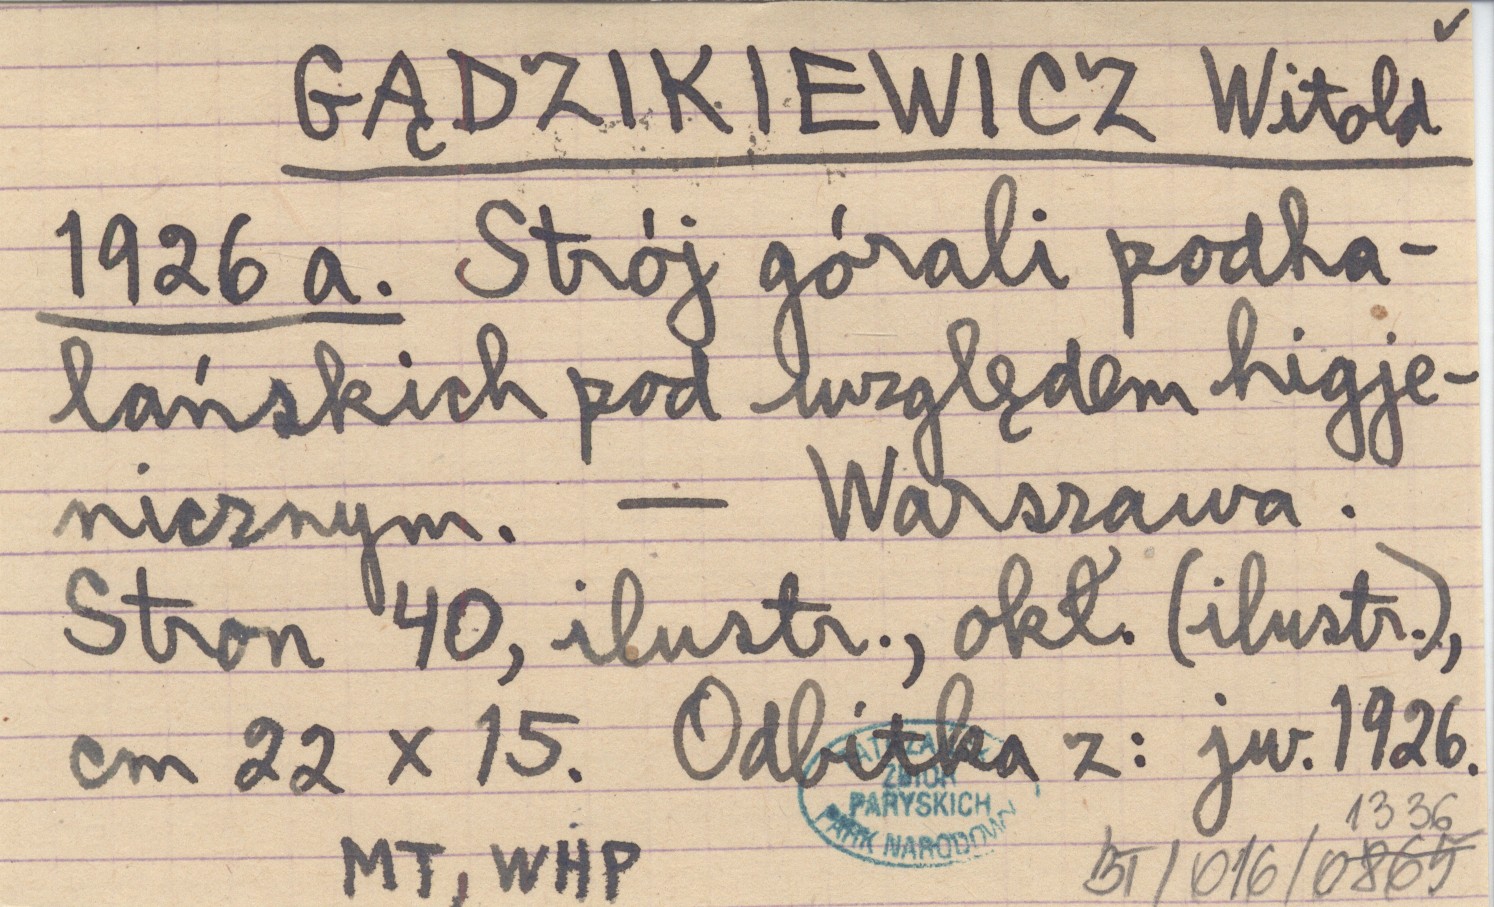 GĄDZIKIEWICZ Witold
1926 a. Strój górali podha-
lańskich pod względem higje-
nicznym. — Warszawa.
Stron 40, ilustr., okł. (ilustr.),
cm 22 x 15. Odbitka z: jw. 1926.
ZBIÓR
PARYSKICH
PARK NARODOWY
1336
BT/016/0865
MT, WHP